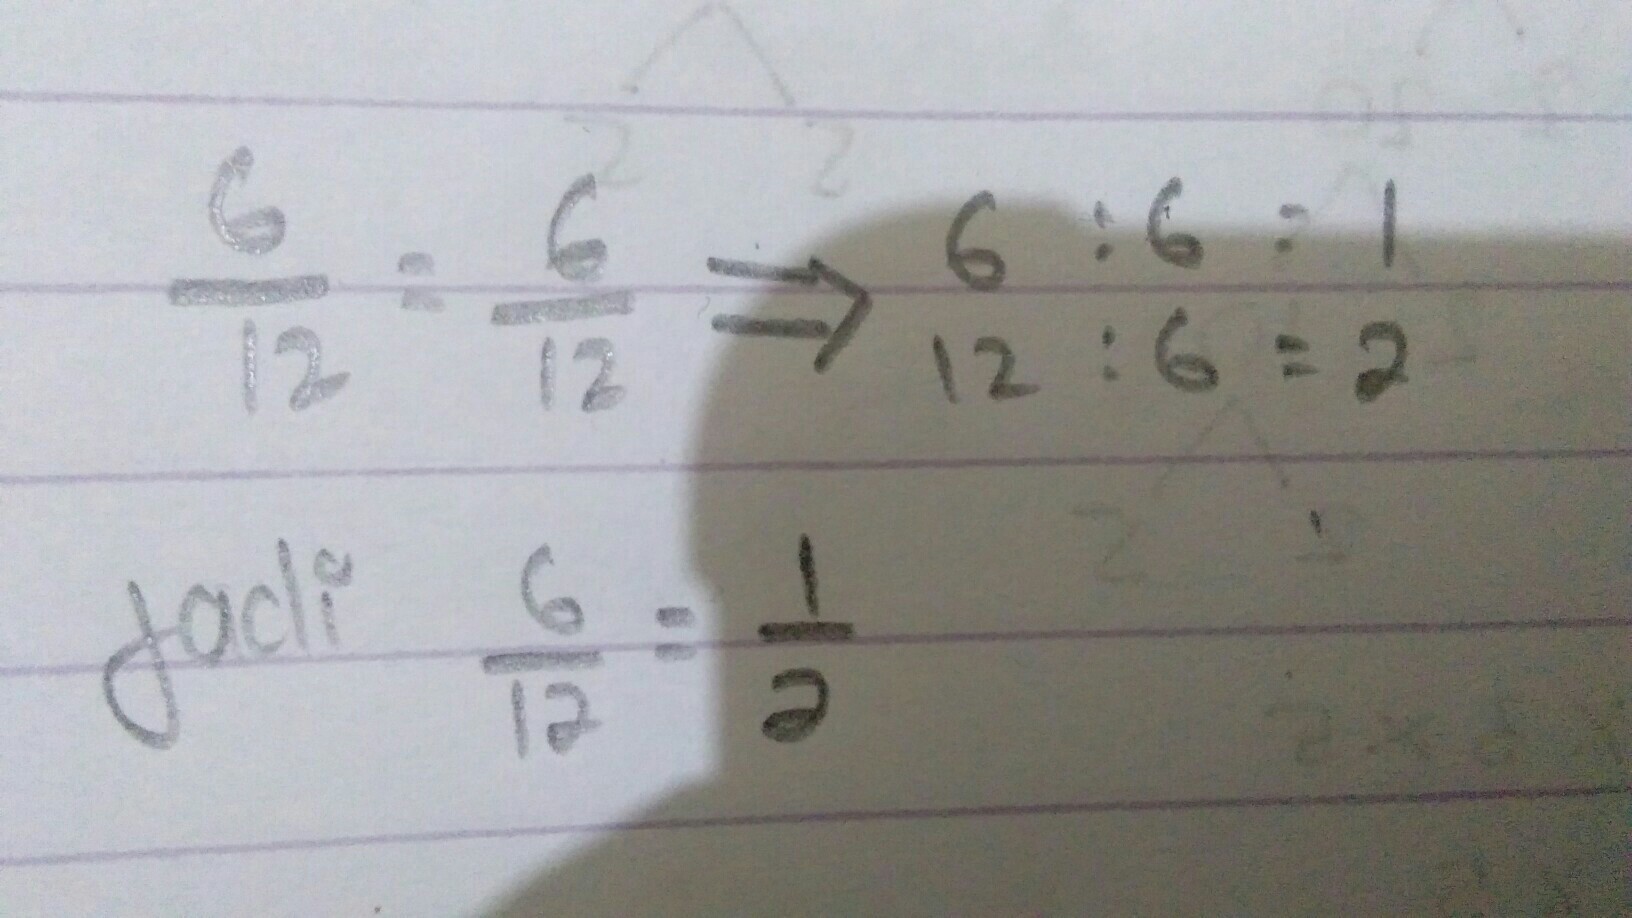 6/12 = 6/12 ⇒ 6 : 6 = 1
12 : 6 = 2
Jadi 6/12 = 1/2